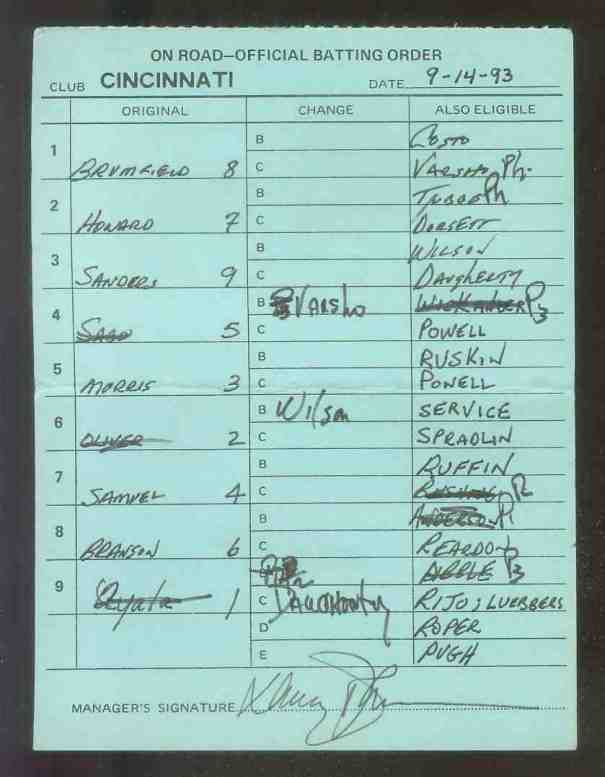 ON ROAD—OFFICIAL BATTING ORDER
CLUB CINCINNATI DATE 9-14-93
ORIGINAL CHANGE ALSO ELIGIBLE
B Costo
1 BRUMFIELD 8 C VARSHO Ph.
B Ph
2 HOWARD 7 C DORSETT
B WILSON
3 SANDERS 9 C DAUGHERTY
B VARSHO P3
4 SABO 5 C POWELL
B RUSKIN
5 MORRIS 3 C POWELL
B Wilson SERVICE
6 OLIVER 2 C SPRADLIN
B RUFFIN
7 SAMUEL 4 C P2
B ANDERSON P1
8 BRANSON 6 C REARDON
P3
9 Ayala 1 C DAUGHERTY RIJO; LUEBBERS
D ROPER
E PUGH
MANAGER'S SIGNATURE